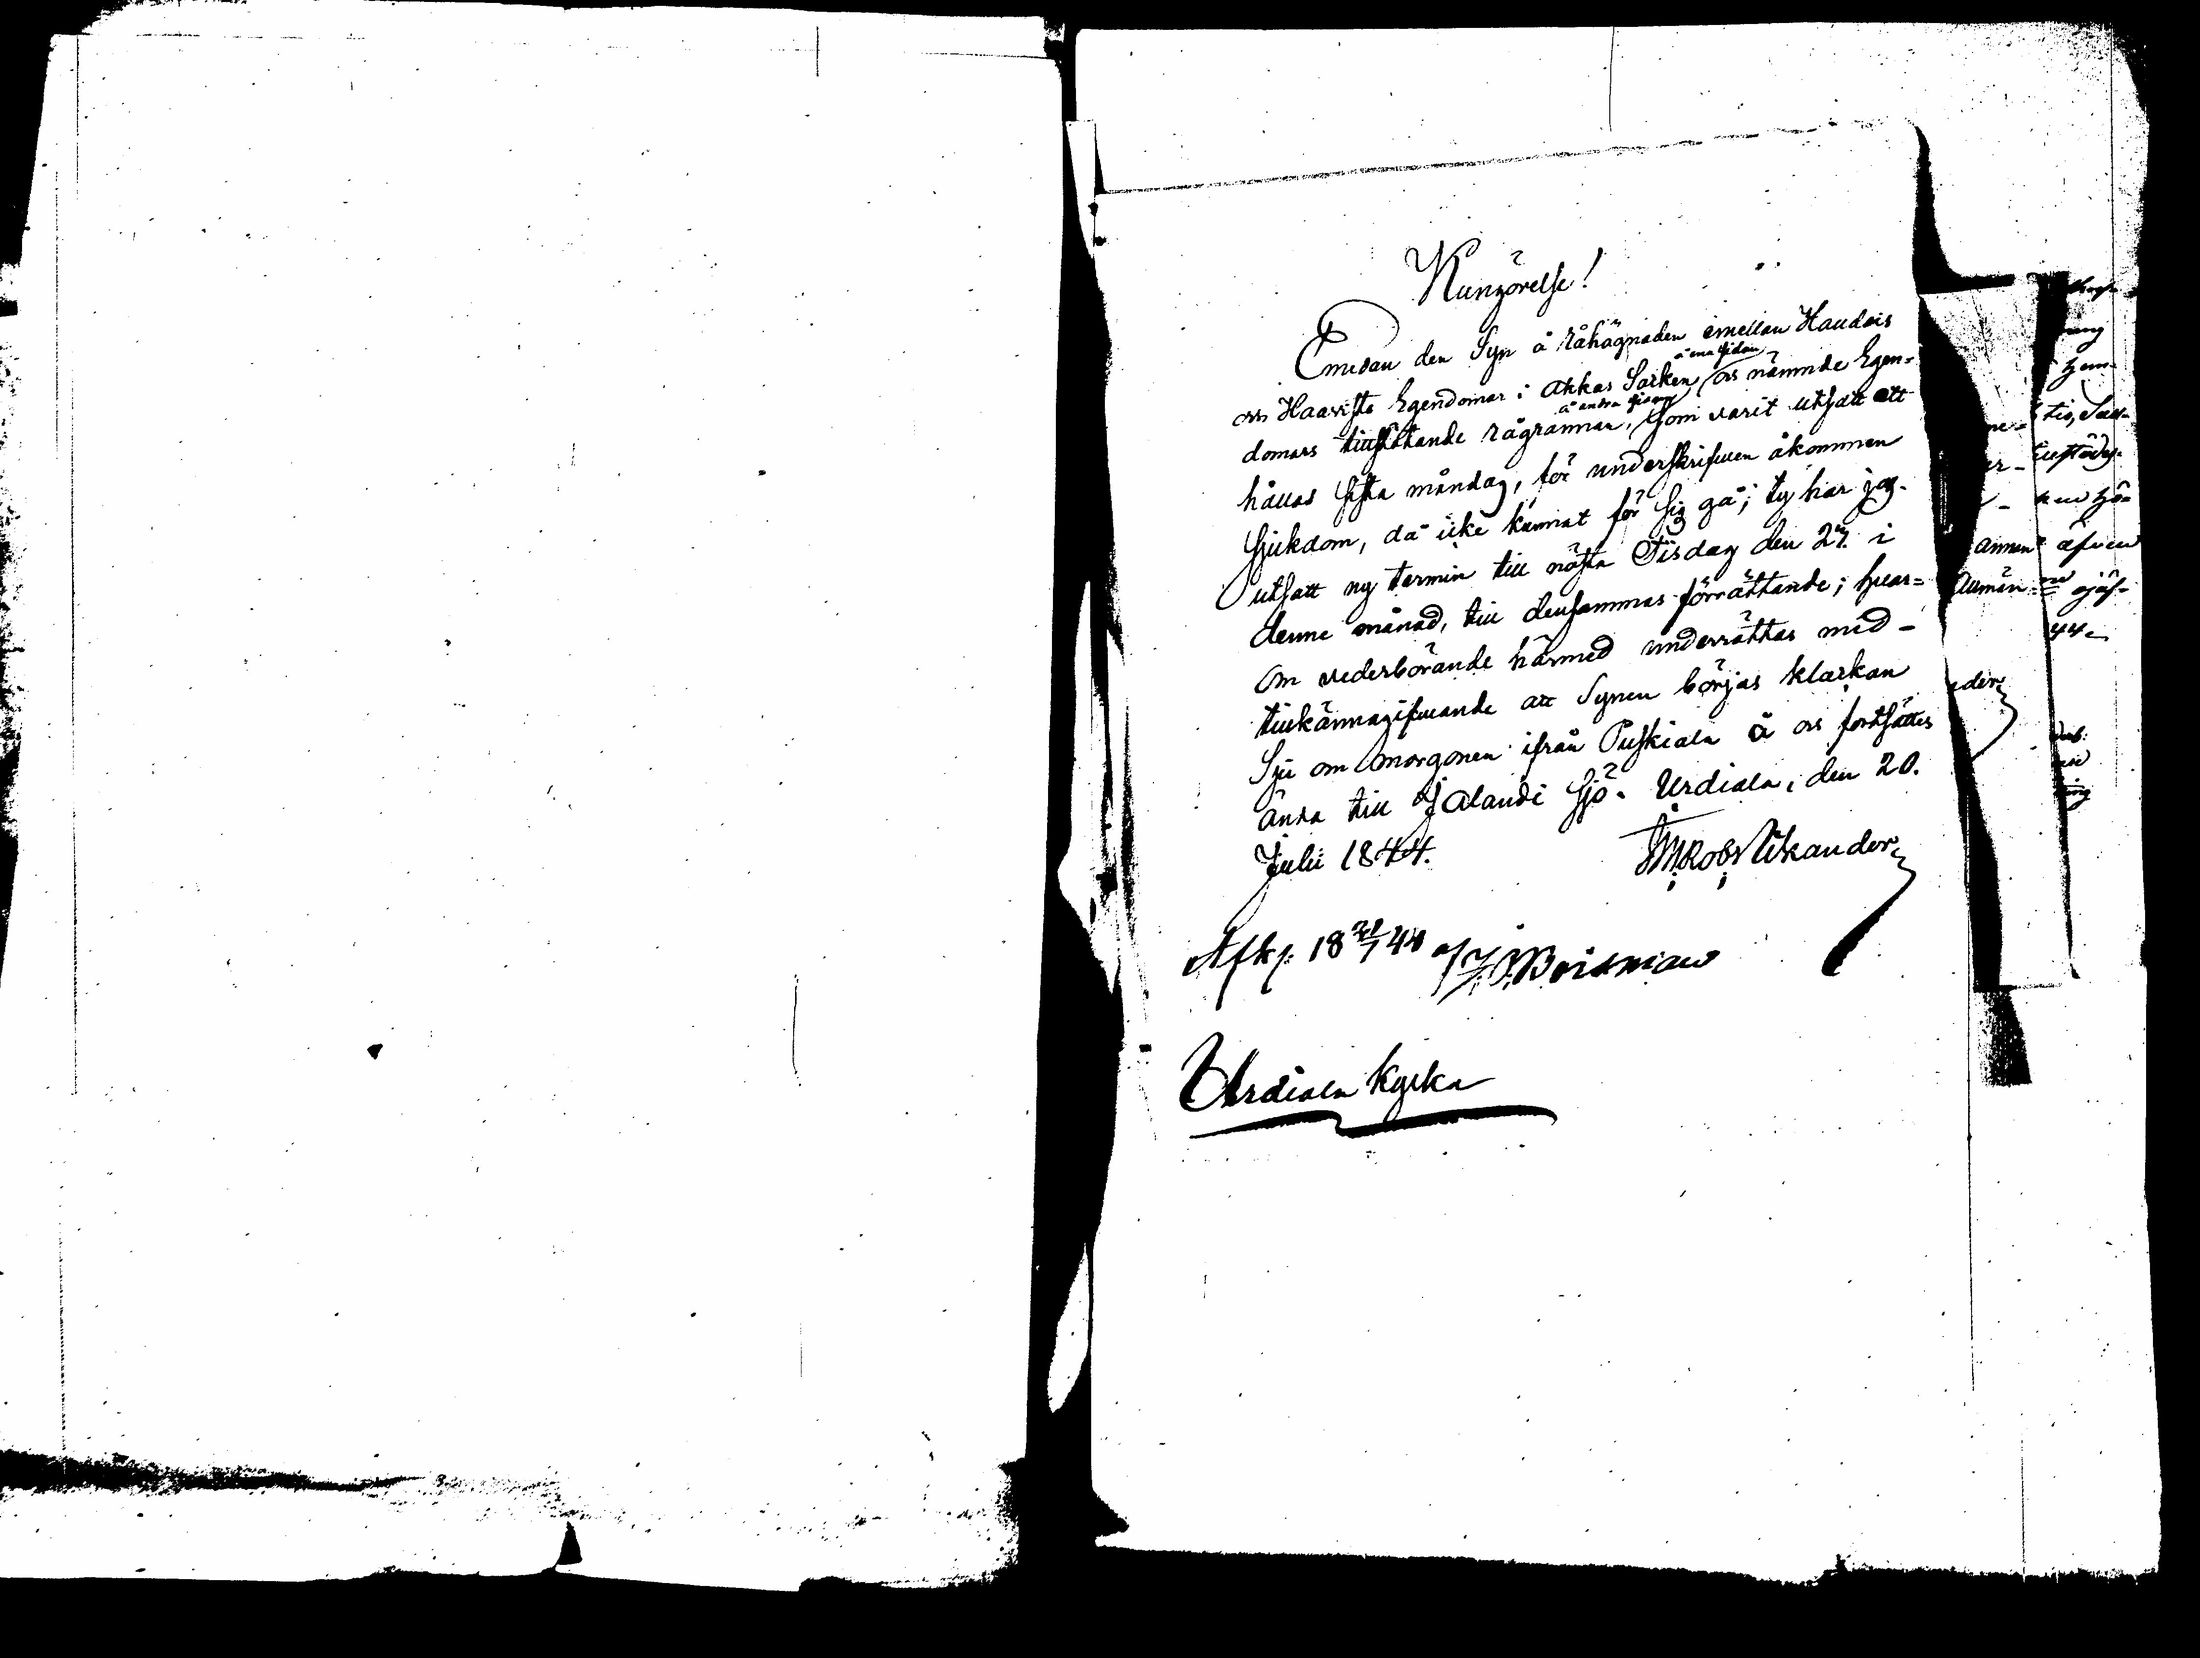 Kungörelse!
Emedan den Syn å råhägnaden emellan Haudais
och Haavisto Egendomar i Akkas Socken å ena sidan och nämnde Egen-
domars tillstötande rågrannar, å andra sidan som varit utsatt att
hållas sista måndag, för underskrifven åkommen
sjukdom, då icke kunnat för sig gå; ty har jag
utsatt ny termin till nästa Tisdag den 27. i
denne månad, till densammas förrättande; hvar-
om vederbörande härmed underrättas med
tillkännagifvande att Synen börjas klockan
Sju om morgonen ifrån Puskiala å och fortsättes
ända till Jalandi Sjö. Urdiala, den 20.
Julii 1844.
Afk. 18 21/7 44 af Boisman
Urdiala Kyrka
annan
Allmän-
äfven
44.